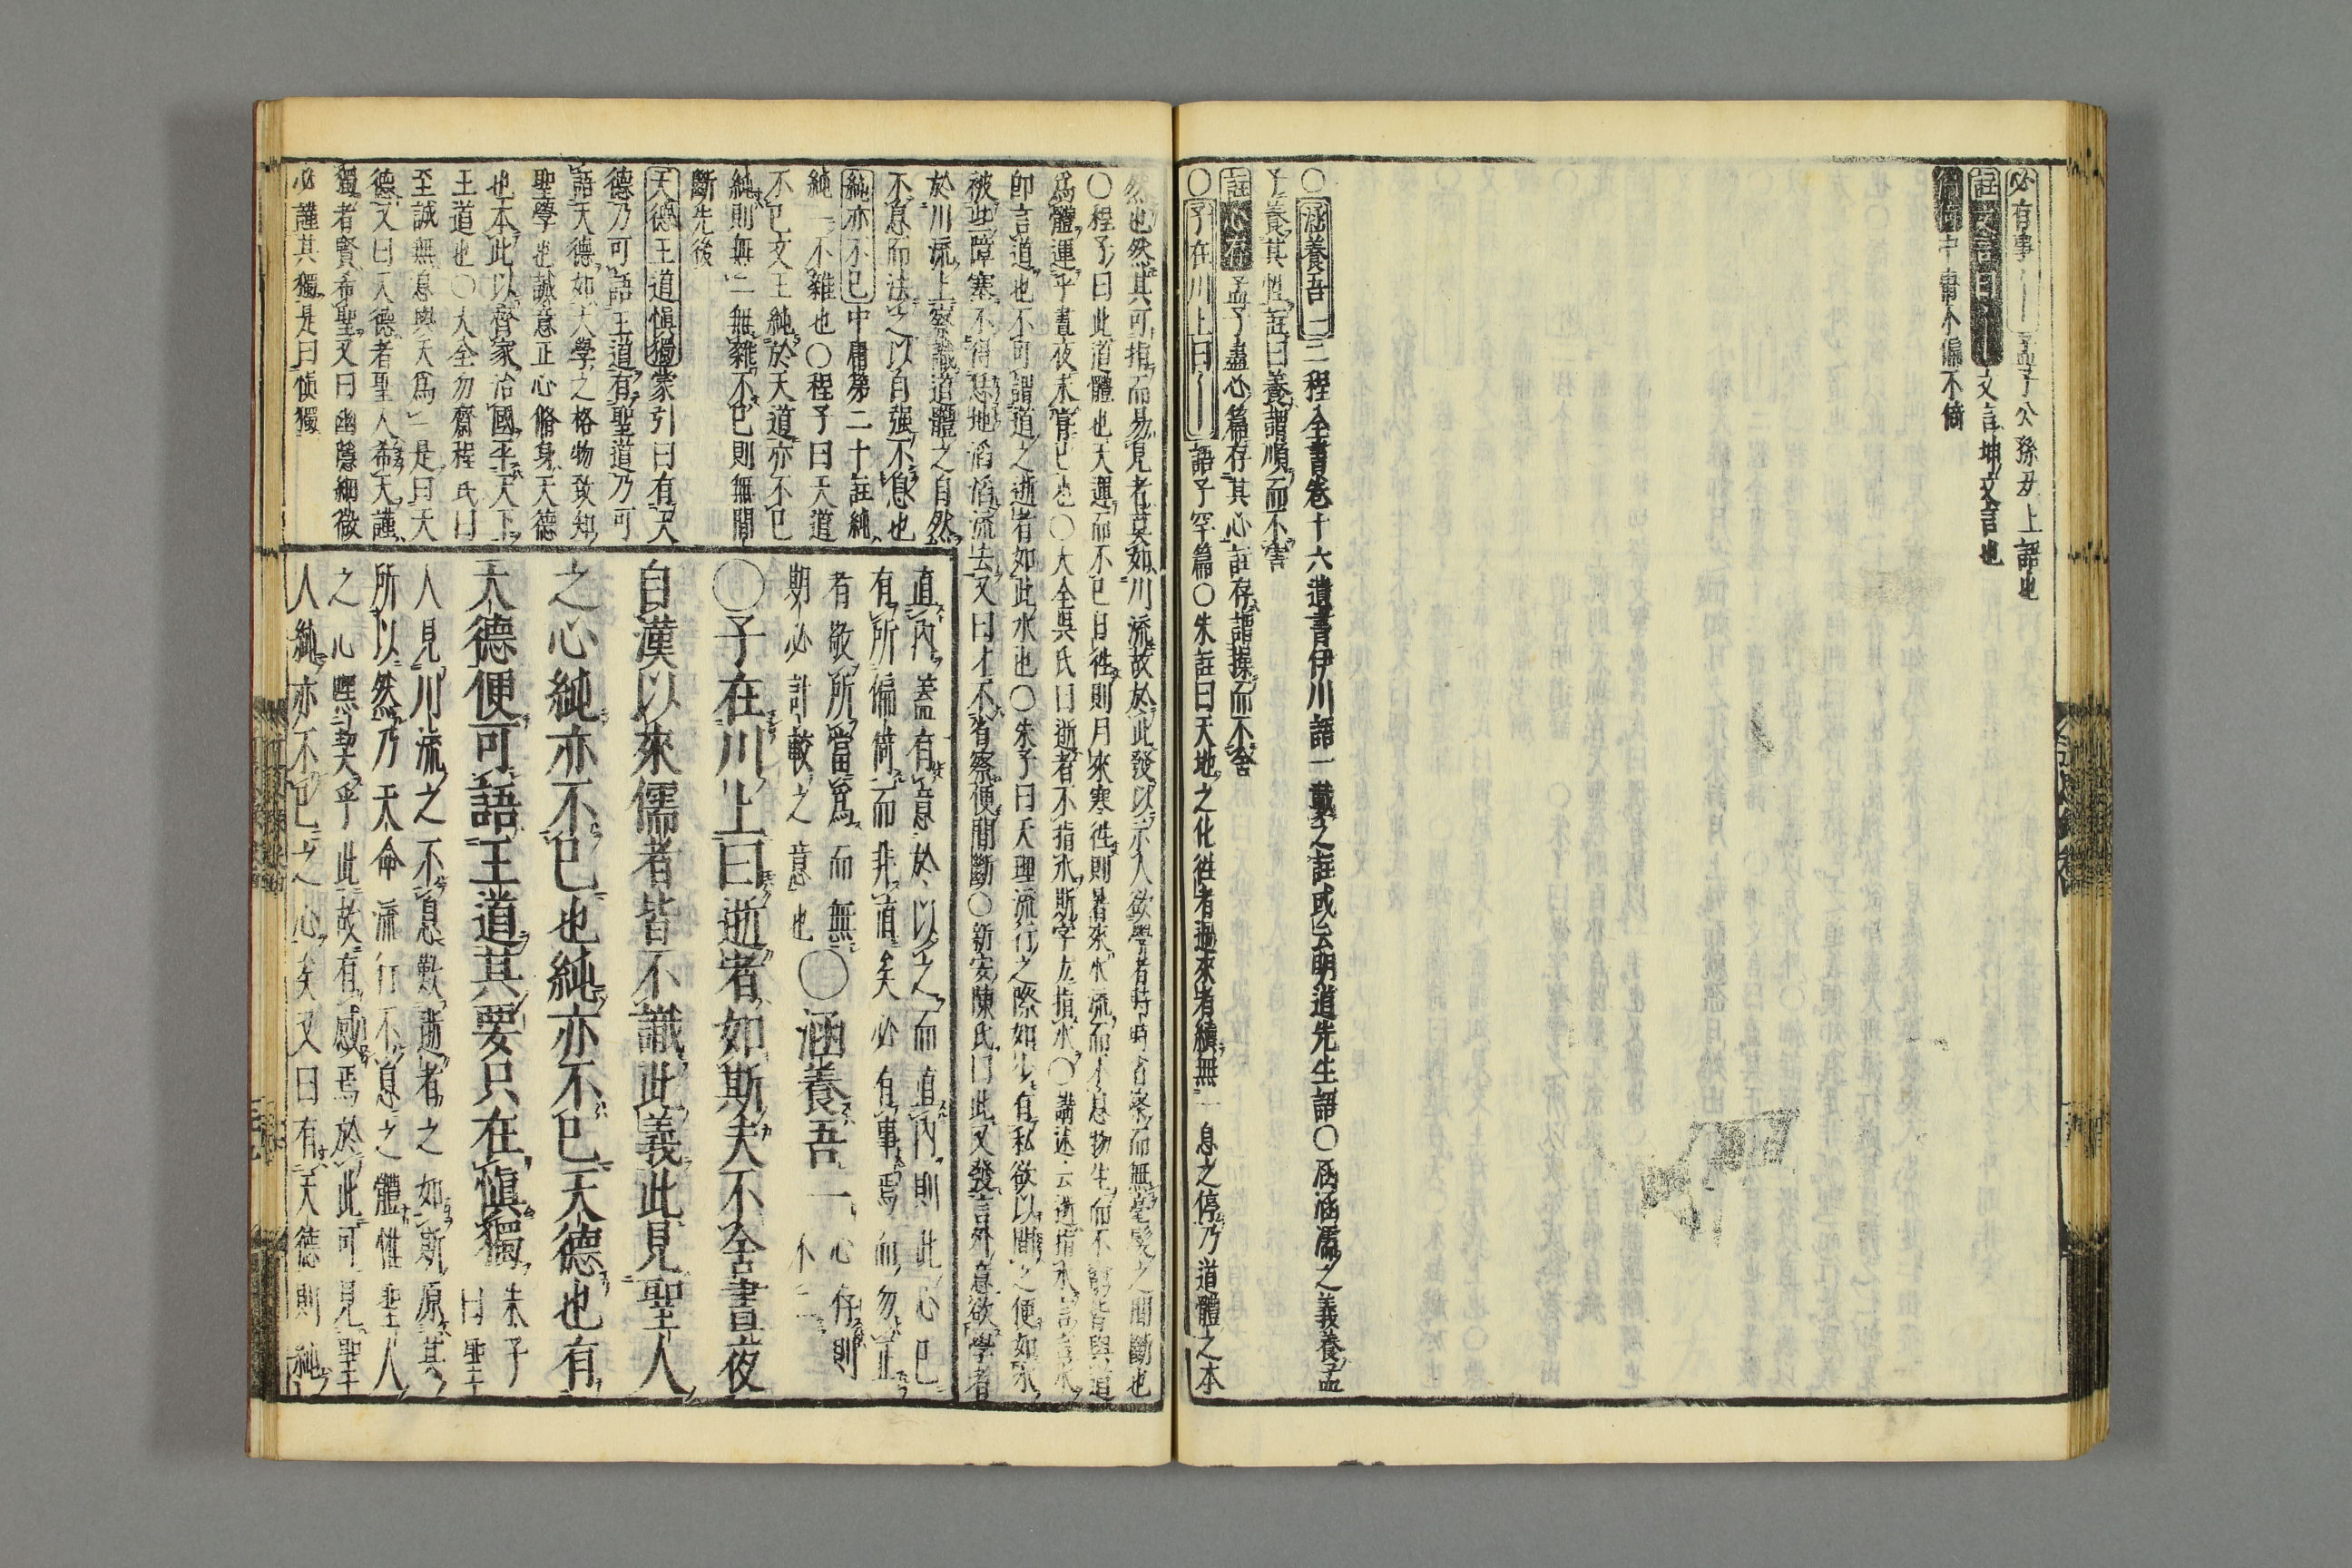 必有事――孟子公孫丑上語也
註文言曰――文言坤文言也
偏倚中庸不偏不倚
〇涵養吾一二程全書卷十六遺書伊川語一載之註或云明道先生語〇涵涵濡之義養孟
子養其性註曰養謂順而不害
註心存孟子盡心篇存其心註存謂操而不舍
〇子在川上曰――語子罕篇〇朱註曰天地之化徃者過來者續無一息之停乃道體之本
然也然其可指而易見者莫如川流故於此發以示人欲學者時時省察而無毫髮之間斷也
〇程子曰此道體也天運而不已日徃則月來寒徃則暑來水流而不息物生而不窮皆與道
爲體運乎晝夜未嘗已也〇大全吳氏曰逝者不指水斯字方指水〇講述云逝指水言言水
卽言道也不可謂道之逝者如此水也〇朱子曰天理流行之際如少有私欲以間之便如水
被些障塞不得恁地滔滔流去又曰才不省察便間斷〇新安陳氏曰此又發言外意欲學者
於川流上察識道體之自然
不息而法之以自强不息也
純亦不已中庸第二十註純
純一不雜也〇程子曰天道
不已文王純於天道亦不已
純則無二無雜不已則無間
斷先後
天德王道愼獨蒙引曰有天
德乃可語王道有聖道乃可
語天德如大學之格物致知
聖學也誠意正心脩身天德
也本此以齊家治國平天下
王道也〇大全勿齋程氏曰
至誠無息與天爲一是曰天
德又曰天德者聖人希天謹
獨者賢希聖又曰幽隱細微
必謹其獨是曰愼獨
直內蓋有意於以之而直內則此心已
有所偏倚而非直矣必有事焉而勿正
者敬所當爲而無
期必計較之意也〇涵養吾一心存則
不二
〇子在川上曰逝者如斯夫不舍晝夜
自漢以來儒者皆不識此義此見聖人
之心純亦不已也純亦不已天德也有
天德便可語王道其要只在愼獨朱子
曰聖
人見川流之不息歎逝者之如斯原其
所以然乃天命流行不息之體惟聖人
之心默契乎此故有感焉於此可見聖
人純亦不已之心矣又曰有天德則純